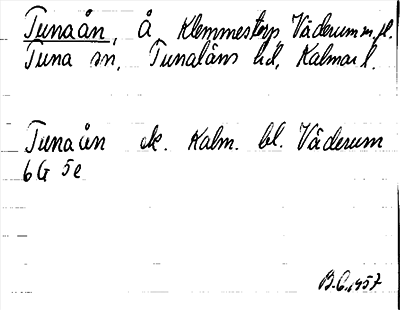 Tunaån, å Klemmestorp Väderum m.fl.
Tuna sn, Tunaläns hd, Kalmar l.
Tunaån ek. Kalm. bl. Väderum
6G 5e
B.C. 1957